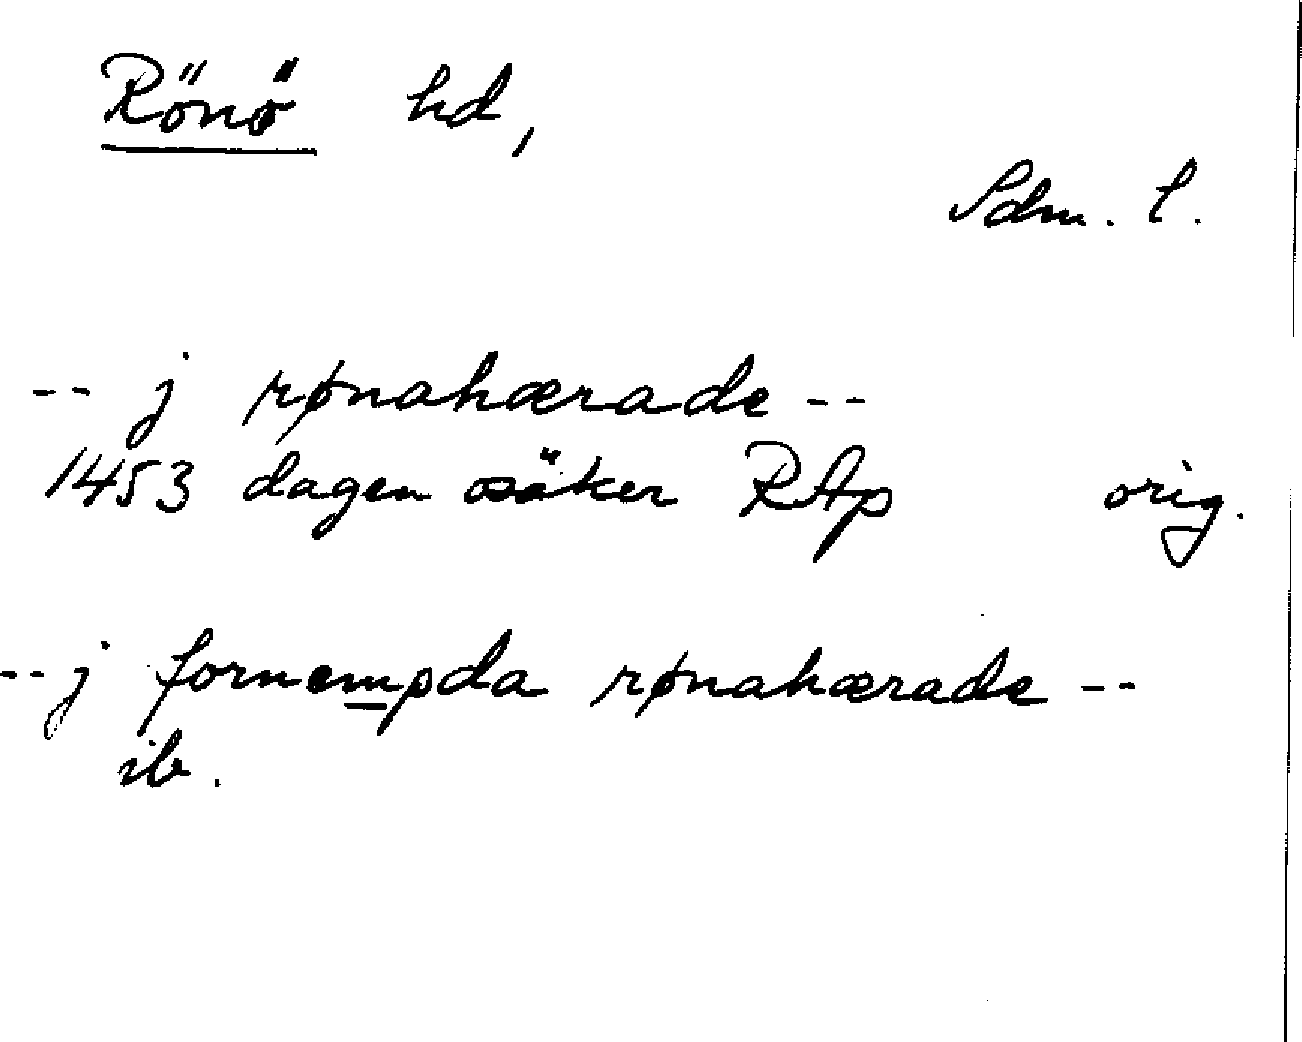 Rönö hd,
Sdm. l.
-- j rønahærade --
1453 dagen osäker RAp orig.
-- j fornempda rønahærade --
ib.